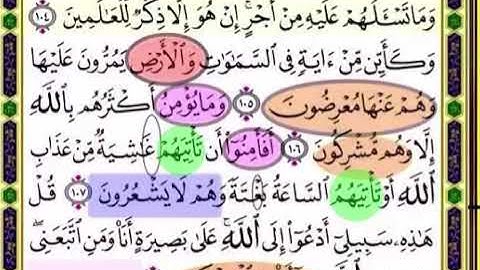 وَمَا تَسْـَٔلُهُمْ عَلَيْهِ مِنْ أَجْرٍ ۚ إِنْ هُوَ إِلَّا ذِكْرٌ لِّلْعَـٰلَمِينَ ١٠٤
وَكَأَيِّن مِّنْ ءَايَةٍ فِى ٱلسَّمَـٰوَٰتِ وَٱلْأَرْضِ يَمُرُّونَ عَلَيْهَا
وَهُمْ عَنْهَا مُعْرِضُونَ ١٠٥ وَمَا يُؤْمِنُ أَكْثَرُهُم بِٱللَّهِ
إِلَّا وَهُم مُّشْرِكُونَ ١٠٦ أَفَأَمِنُوٓا۟ أَن تَأْتِيَهُمْ غَـٰشِيَةٌ مِّنْ عَذَابِ
ٱللَّهِ أَوْ تَأْتِيَهُمُ ٱلسَّاعَةُ بَغْتَةً وَهُمْ لَا يَشْعُرُونَ ١٠٧ قُلْ
هَـٰذِهِۦ سَبِيلِىٓ أَدْعُوٓا۟ إِلَى ٱللَّهِ ۚ عَلَىٰ بَصِيرَةٍ أَنَا۠ وَمَنِ ٱتَّبَعَنِى ۖ